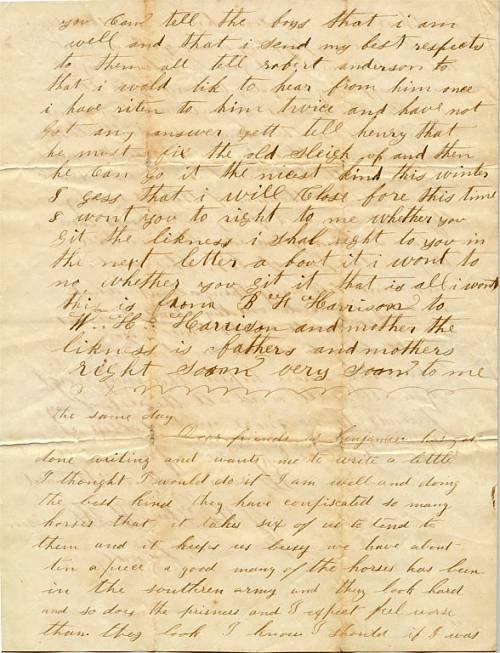 you Can tell the boys that i am
well and that i send my best respects
to them all tell robert anderson to
that i wold lik to hear from him once
i have riten to him twice and have not
got any answer yett tell henry that
he must fix the old sleigh up and then
he Can go it the nicest kind this winter
I gess that i will Close fore this time
I wont you to right to me whether you
Git the likness i shal right to you in
the next letter a bout it i wont to
no whether you git it that is all i wont
this is from B F Harrison to
W. H. Harrison and mother the
likness is fathers and mothers
right soon very soon to me
the same day
Dear friends as benjamin has got
done writing and wants me to write a little
I thought I would do it I am well and doing
the best kind they have confiscated so many
horses that it takes six of us to tend to
them and it keeps us busy we have about
tin a piece a good many of the horses has been
in the southren army and they look hard
and so does the prisners and I expect feel worse
than they look I know I should if I was